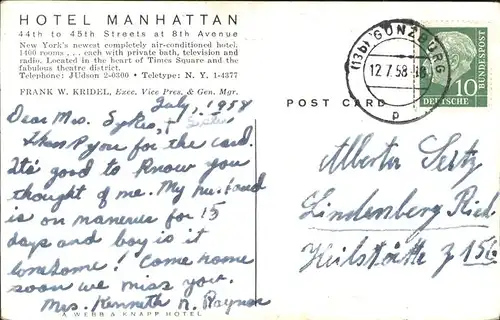 HOTEL MANHATTAN
44th to 45th Streets at 8th Avenue
New York's newest completely air-conditioned hotel.
1400 rooms . . . each with private bath, television and
radio. Located in the heart of Times Square and the
fabulous theatre district.
Telephone: JUdson 2-0300 • Teletype: N. Y. 1-4377
FRANK W. KRIDEL, Exec. Vice Pres. & Gen. Mgr.
POST CARD
(13b) GÜNZBURG
12.7.58
p
10
DEUTSCHE
BUNDESPOST
July, 1958
Dear Mrs. Sykes, + Sister
Thank you for the card.
It's good to know you
thought of me. My husband
is on manerues for 15
days and boy is it
lonesome! Come home
soon we miss you.
Mrs. Kenneth N. Raynor
A WEBB & KNAPP HOTEL
Alberta Seitz
Lindenberg Ried
Heilstätte Z 156